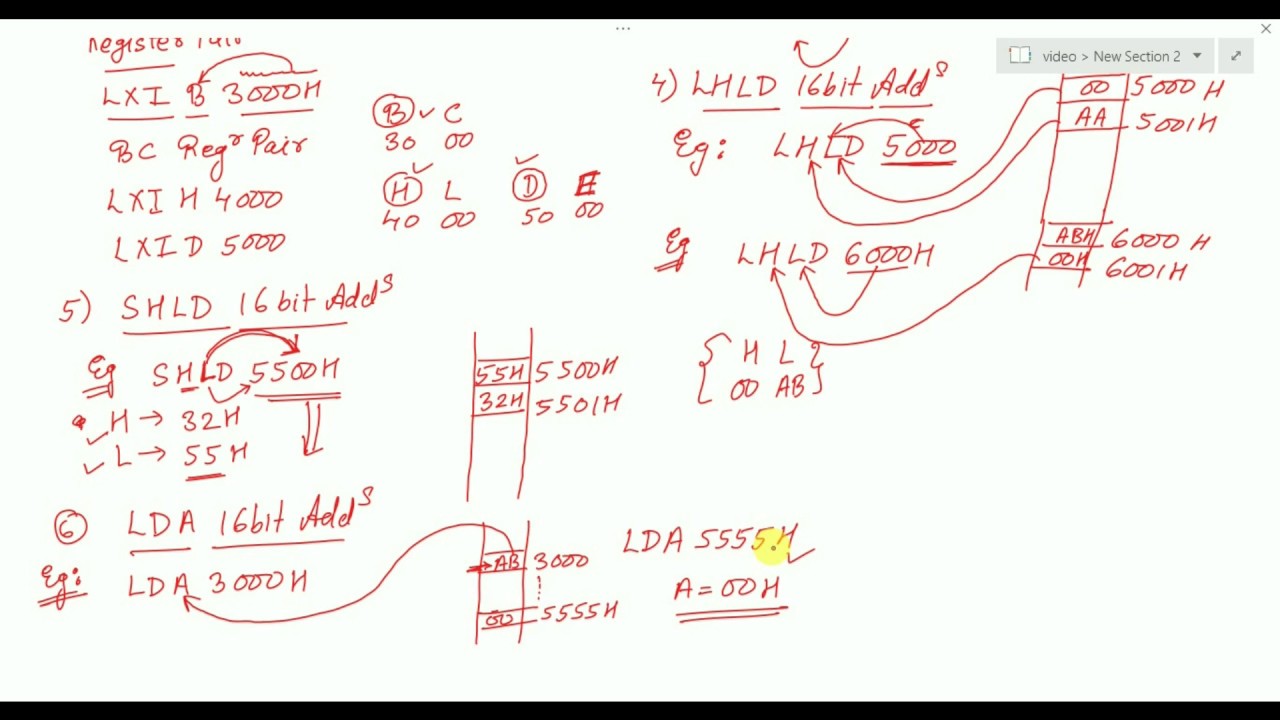 video > New Section 2
Register Pair
LXI B 3000H
BC Regr Pair
LXI H 4000
LXI D 5000
B C
30 00
H L D E
40 00 50 00
4) LHLD 16bit Adds
Eg: LHLD 5000
00 5000 H
AA 5001H
Eg LHLD 6000H
ABH 6000 H
00H 6001H
{ H L }
[ 00 AB ]
5) SHLD 16 bit Adds
Eg SHLD 5500H
H → 32H
L → 55H
55H 5500H
32H 5501H
6 LDA 16bit Adds
Eg: LDA 3000H
AB 3000
00 5555H
LDA 5555H
A = 00H